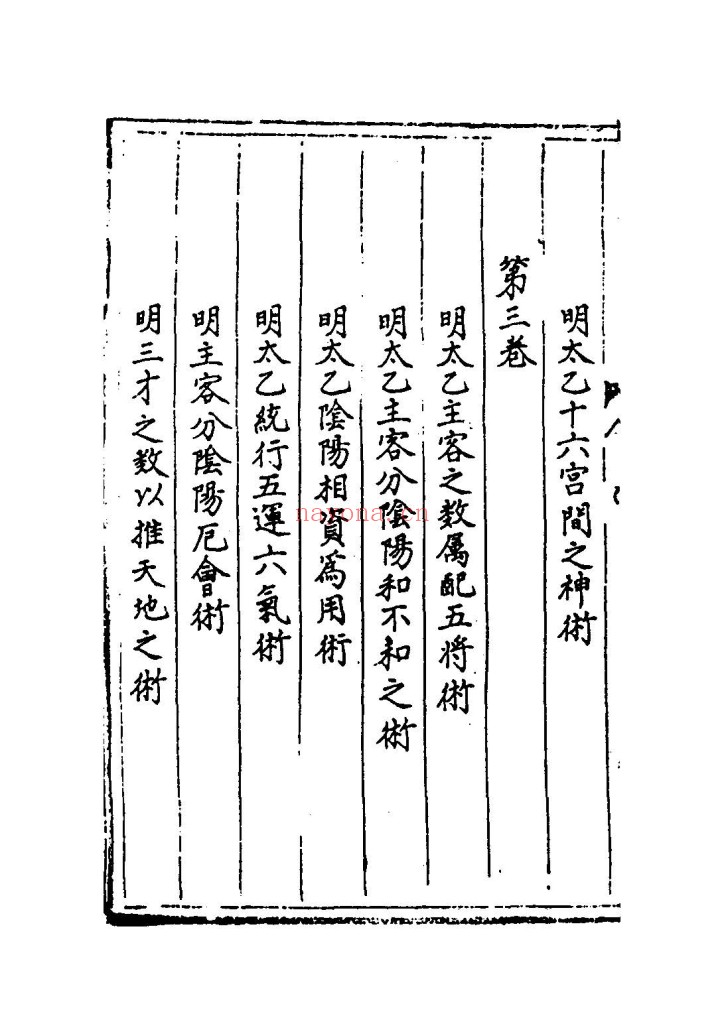 明太乙十六宮間之神術
第三卷
明太乙主客之数属配五将術
明太乙主客分陰陽和不和之術
明太乙陰陽相資為用術
明太乙統行五運六氣術
明主客分陰陽厄會術
明三才之数以推天地之術
nayona.cn